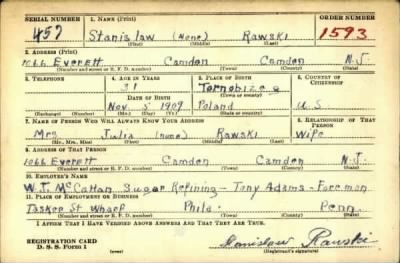 SERIAL NUMBER 1. NAME (Print) ORDER NUMBER
457 Stanislaw (None) Rawski 1593
(First) (Middle) (Last)
2. ADDRESS (Print)
1066 Everett Camden Camden N.J.
(Number and street or R. F. D. number) (Town) (County) (State)
3. TELEPHONE 4. AGE IN YEARS 5. PLACE OF BIRTH 6. COUNTRY OF CITIZENSHIP
31 Tarnobizeg
DATE OF BIRTH (Town or county)
Nov 5 1909 Poland U.S
(Exchange) (No.) (Mo.) (Day) (Yr.) (State or country)
7. NAME OF PERSON WHO WILL ALWAYS KNOW YOUR ADDRESS 8. RELATIONSHIP OF THAT PERSON
Mrs Julia (none) Rawski Wife
(Mr., Mrs., Miss) (First) (Middle) (Last)
9. ADDRESS OF THAT PERSON
1066 Everett Camden Camden N.J.
(Number and street or R. F. D. number) (Town) (County) (State)
10. EMPLOYER'S NAME
W.J. McCahan Sugar Refining - Tony Adams - Foreman
11. PLACE OF EMPLOYMENT OR BUSINESS
Tasker St Wharf Phila. Penn.
(Number and street or R. F. D. number) (Town) (County) (State)
I AFFIRM THAT I HAVE VERIFIED ABOVE ANSWERS AND THAT THEY ARE TRUE.
REGISTRATION CARD
D. S. S. Form 1 Stanislaw Rawski
(Registrant's signature)